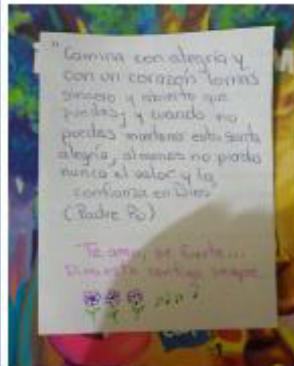 "Camina con alegría y
con un corazón lo más
sincero y abierto que
puedas, y cuando no
puedas mantener esta santa
alegría, al menos no pierdas
nunca el valor y la
confianza en Dios"
(Padre Pío)
Te amo, se fuerte...
Dios está contigo siempre